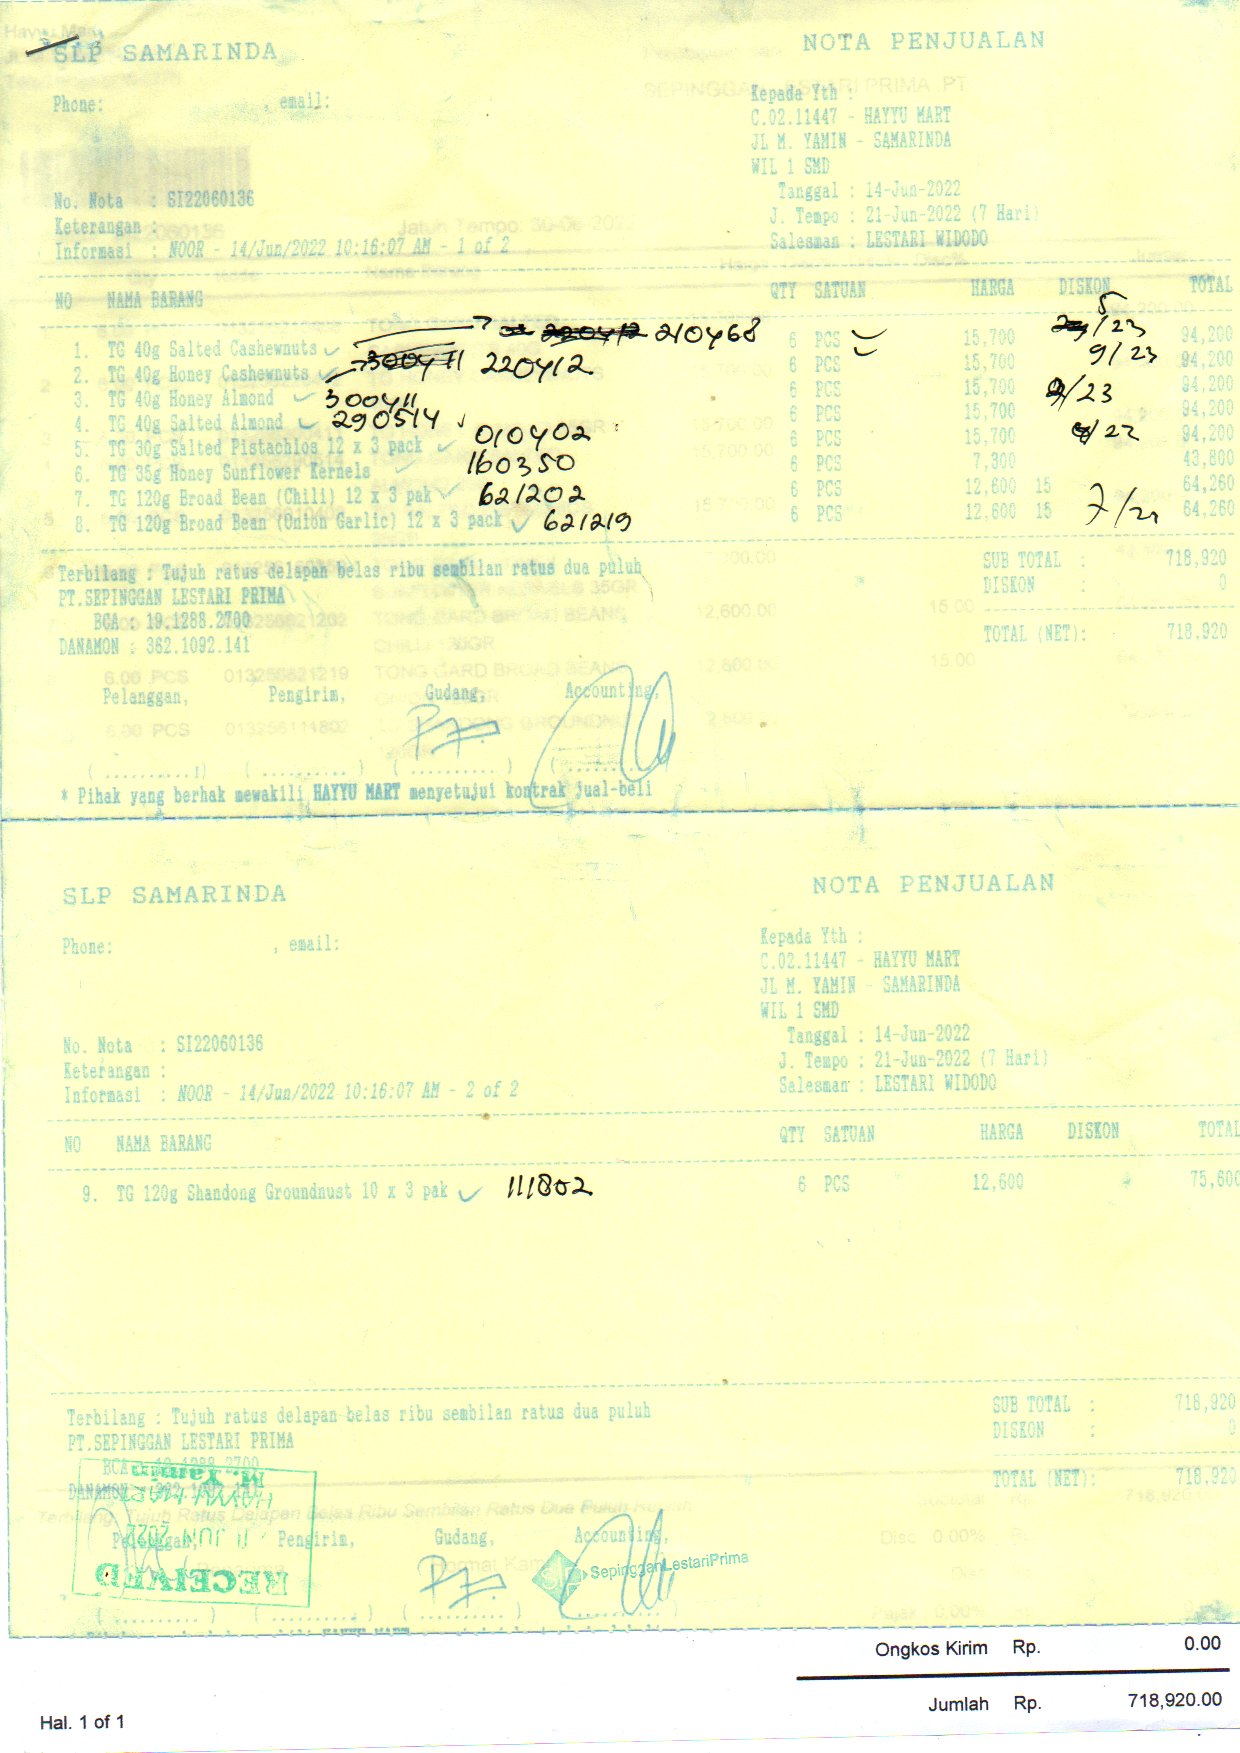 SLP SAMARINDA
NOTA PENJUALAN
Phone: , email:
Kepada Yth :
C.02.11447 - HAYYU MART
JL M. YAMIN - SAMARINDA
WIL 1 SMD
No. Nota : SI22060136
Tanggal : 14-Jun-2022
Keterangan :
J. Tempo : 21-Jun-2022 (7 Hari)
Informasi : NOOR - 14/Jun/2022 10:16:07 AM - 1 of 2
Salesman : LESTARI WIDODO
NO NAMA BARANG QTY SATUAN HARGA DISKON TOTAL
1. TG 40g Salted Cashewnuts 210468 6 PCS 15,700 5/23 94,200
2. TG 40g Honey Cashewnuts 220412 6 PCS 15,700 9/23 94,200
3. TG 40g Honey Almond 300411 6 PCS 15,700 /23 94,200
4. TG 40g Salted Almond 290514 6 PCS 15,700 94,200
5. TG 30g Salted Pistachios 12 x 3 pack 010402 6 PCS 15,700 /22 94,200
6. TG 35g Honey Sunflower Kernels 160350 6 PCS 7,300 43,800
7. TG 120g Broad Bean (Chili) 12 x 3 pak 621202 6 PCS 12,600 15 64,260
8. TG 120g Broad Bean (Onion Garlic) 12 x 3 pack 621219 6 PCS 12,600 15 64,260
Terbilang : Tujuh ratus delapan belas ribu sembilan ratus dua puluh
SUB TOTAL : 718,920
PT.SEPINGGAN LESTARI PRIMA
DISKON : 0
BCA : 19.1288.2700
DANAMON : 362.1092.141
TOTAL (NET): 718.920
Pelanggan, Pengirim, Gudang, Accounting,
* Pihak yang berhak mewakili HAYYU MART menyetujui kontrak jual-beli
SLP SAMARINDA
NOTA PENJUALAN
Phone: , email:
Kepada Yth :
C.02.11447 - HAYYU MART
JL M. YAMIN - SAMARINDA
WIL 1 SMD
No. Nota : SI22060136
Tanggal : 14-Jun-2022
Keterangan :
J. Tempo : 21-Jun-2022 (7 Hari)
Informasi : NOOR - 14/Jun/2022 10:16:07 AM - 2 of 2
Salesman : LESTARI WIDODO
NO NAMA BARANG QTY SATUAN HARGA DISKON TOTAL
9. TG 120g Shandong Groundnust 10 x 3 pak 111802 6 PCS 12,600 75,600
Terbilang : Tujuh ratus delapan belas ribu sembilan ratus dua puluh
SUB TOTAL : 718,920
PT.SEPINGGAN LESTARI PRIMA
DISKON : 0
BCA : 19.1288.2700
DANAMON
TOTAL (NET): 718,920
Pelanggan, Pengirim, Gudang, Accounting,
RECEIVED
SepingganLestariPrima
Ongkos Kirim Rp. 0.00
Jumlah Rp. 718,920.00
Hal. 1 of 1